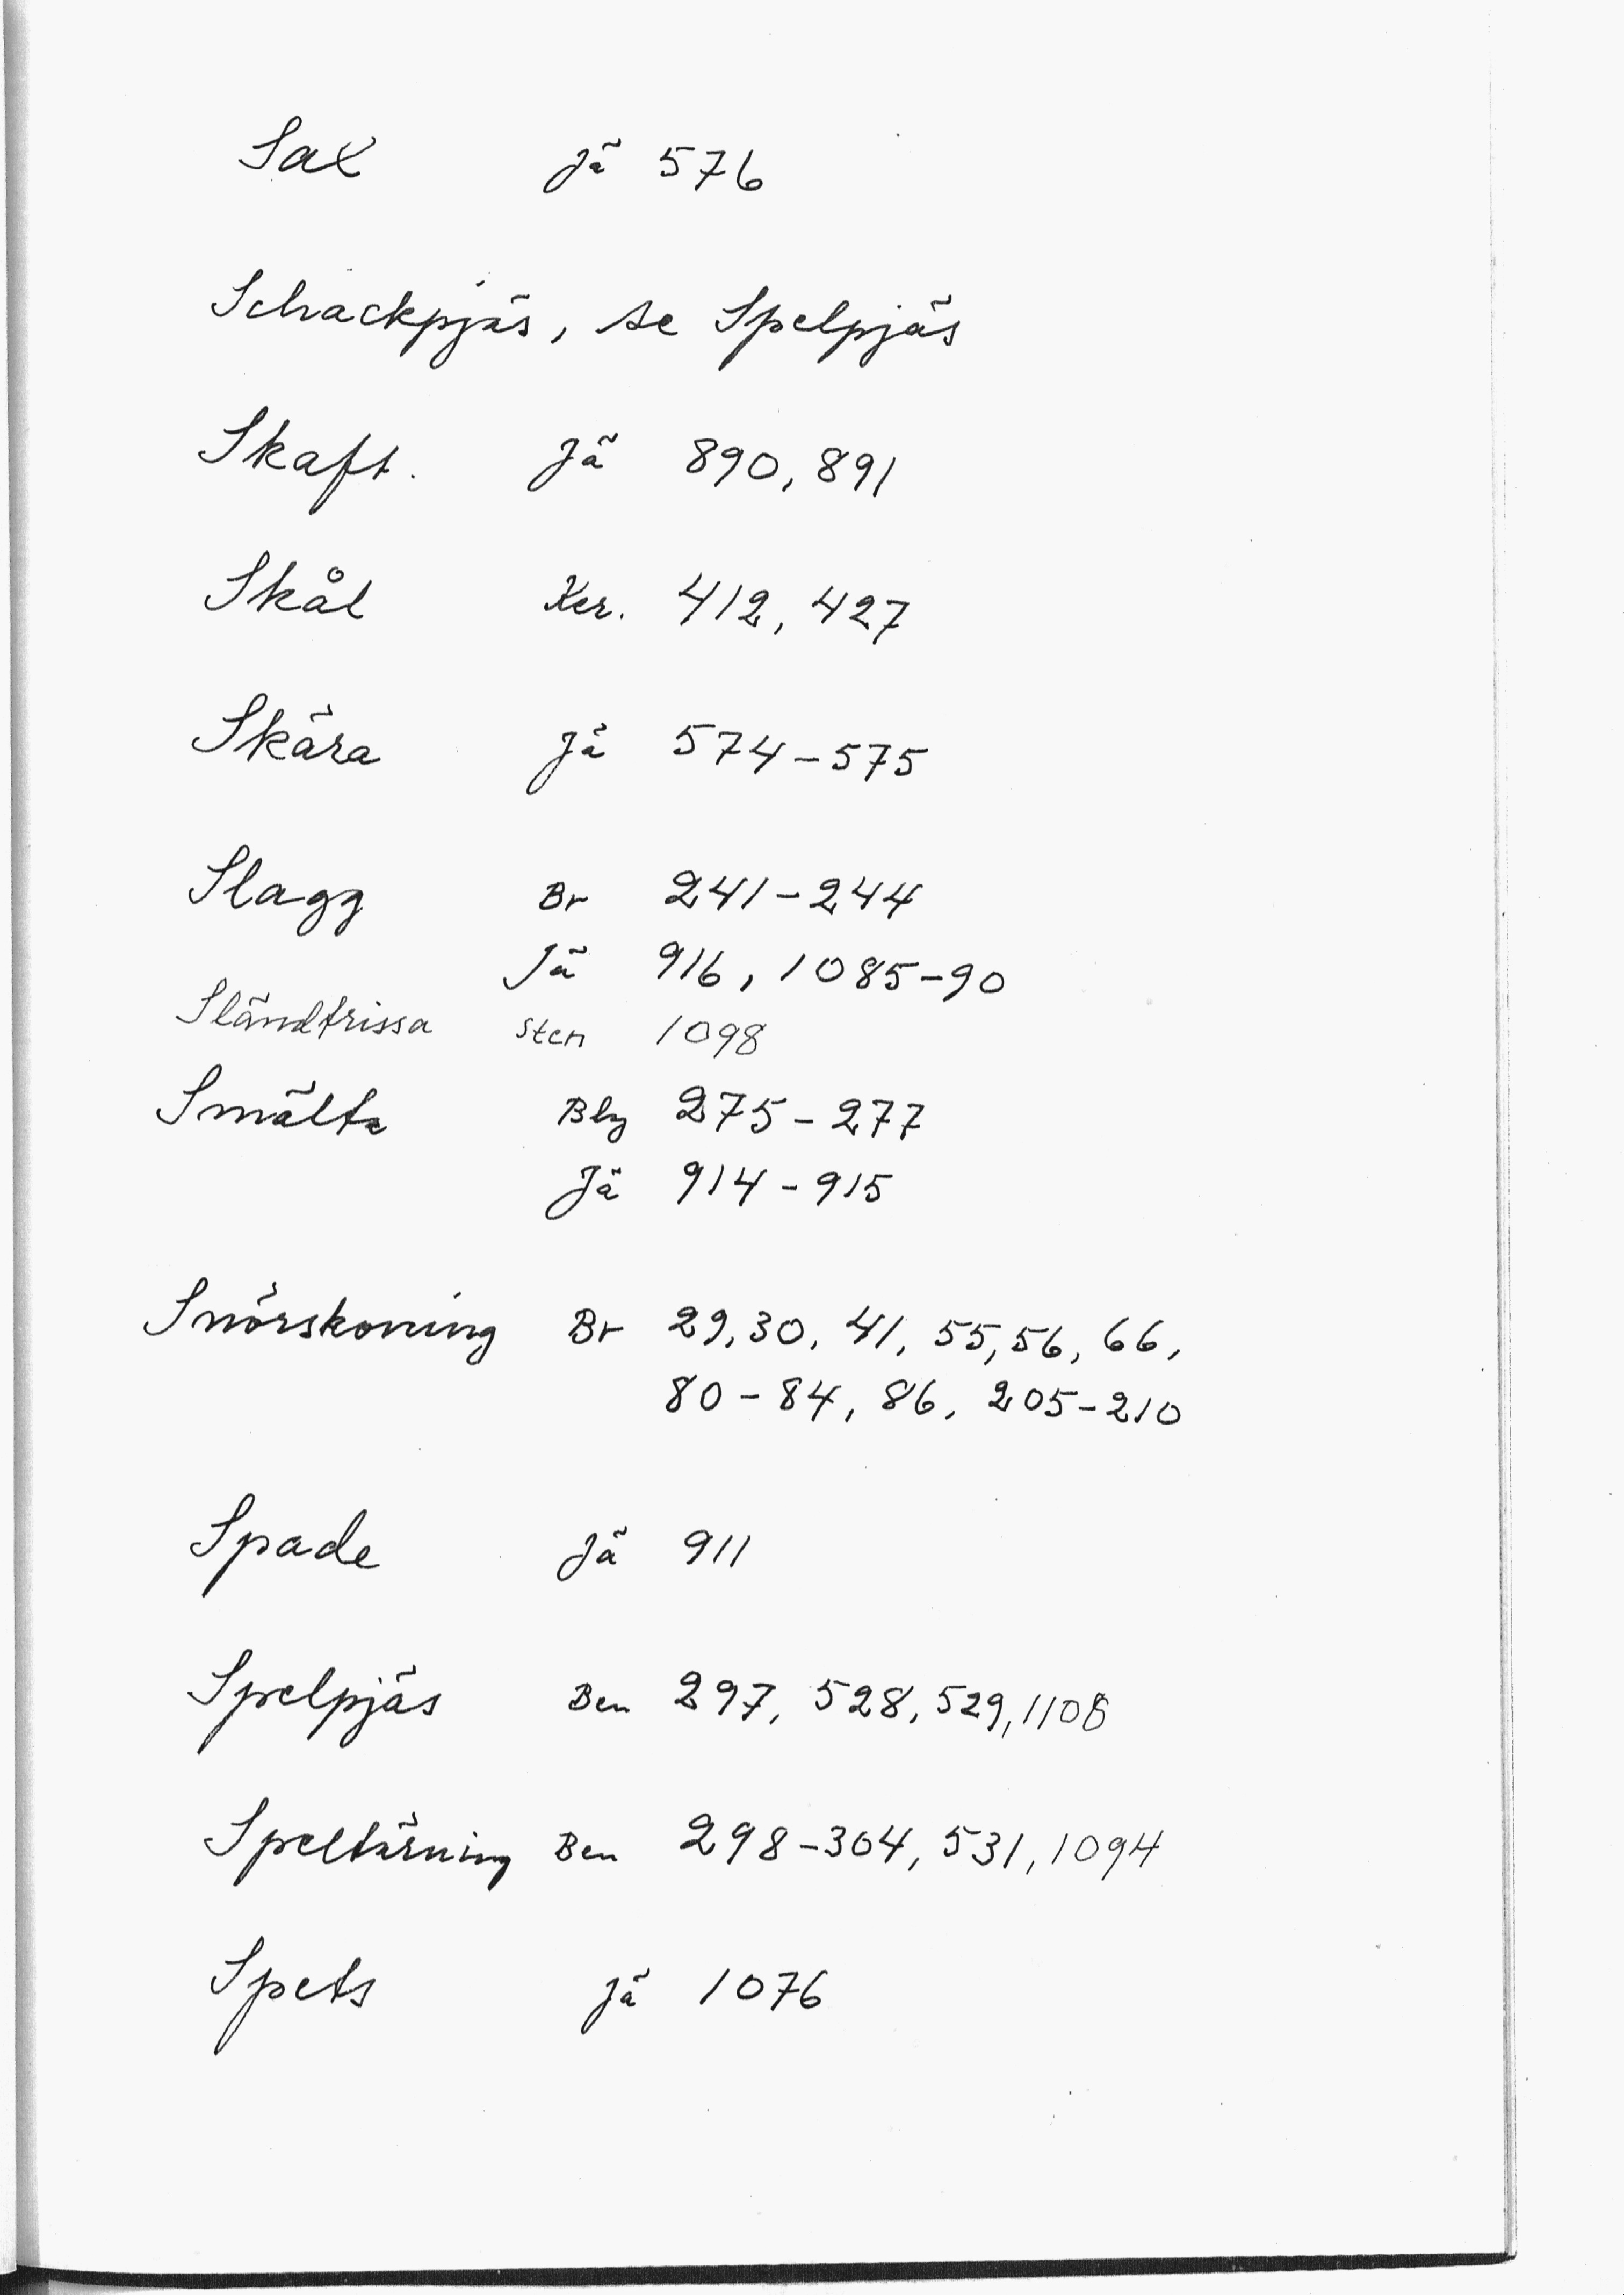 Sax Jä 576
Schackpjäs, se Spelpjäs
Skaft. Jä 890, 891
Skål Ker. 412, 427
Skära Jä 574-575
Slagg Br 241-244
Jä 916, 1085-90
Sländtrissa Sten 1098
Smälta Bly 275-277
Jä 914-915
Snörskoning Br 29, 30, 41, 55, 56, 66,
80-84, 86, 205-210
Spade Jä 911
Spelpjäs Ben 297, 528, 529, 1108
Speltärning Ben 298-304, 531, 1094
Spets Jä 1076